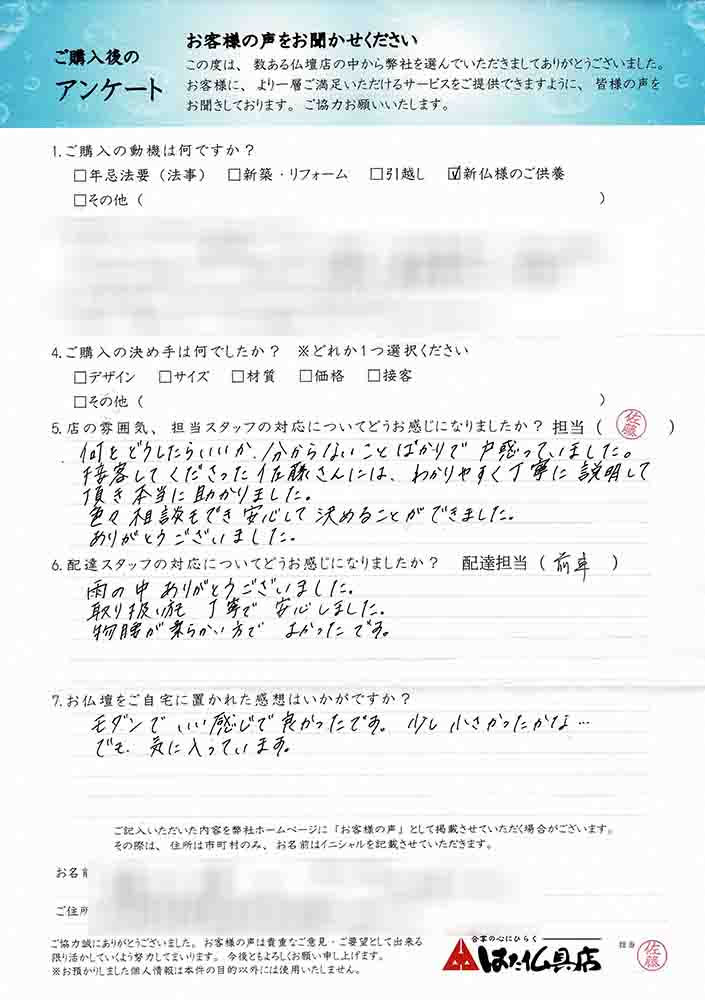 ご購入後の
アンケート
お客様の声をお聞かせください
この度は、数ある仏壇店の中から弊社を選んでいただきましてありがとうございました。
お客様に、より一層ご満足いただけるサービスをご提供できますように、皆様の声を
お聞きしております。ご協力お願いいたします。
1.ご購入の動機は何ですか？
□年忌法要（法事） □新築・リフォーム □引越し ☑新仏様のご供養
□その他（ ）
4.ご購入の決め手は何でしたか？ ※どれか1つ選択ください
□デザイン □サイズ □材質 □価格 □接客
□その他（ ）
5.店の雰囲気、担当スタッフの対応についてどうお感じになりましたか？担当（ 佐藤 ）
何をどうしたらいいか、分からないことばかりで戸惑っていました。
接客してくださった佐藤さんには、わかりやすく丁寧に説明して
頂き本当に助かりました。
色々相談もでき安心して決めることができました。
ありがとうございました。
6.配達スタッフの対応についてどうお感じになりましたか？ 配達担当（ 前車 ）
雨の中ありがとうございました。
取り扱い方も丁寧で安心しました。
物腰が柔らかい方でよかったです。
7.お仏壇をご自宅に置かれた感想はいかがですか？
モダンでいい感じで良かったです。少し小さかったかな…
でも、気に入っています。
ご記入いただいた内容を弊社ホームページに「お客様の声」として掲載させていただく場合がございます。
その際は、住所は市町村のみ、お名前はイニシャルを記載させていただきます。
お名前
ご住所
ご協力誠にありがとうございました。お客様の声は貴重なご意見・ご要望として出来る
限り活かしていくよう努力してまいります。今後ともよろしくお願い申し上げます。
※お預かりしました個人情報は本件の目的以外には使用いたしません。
合掌の心にひらく
はた仏具店
担当 佐藤